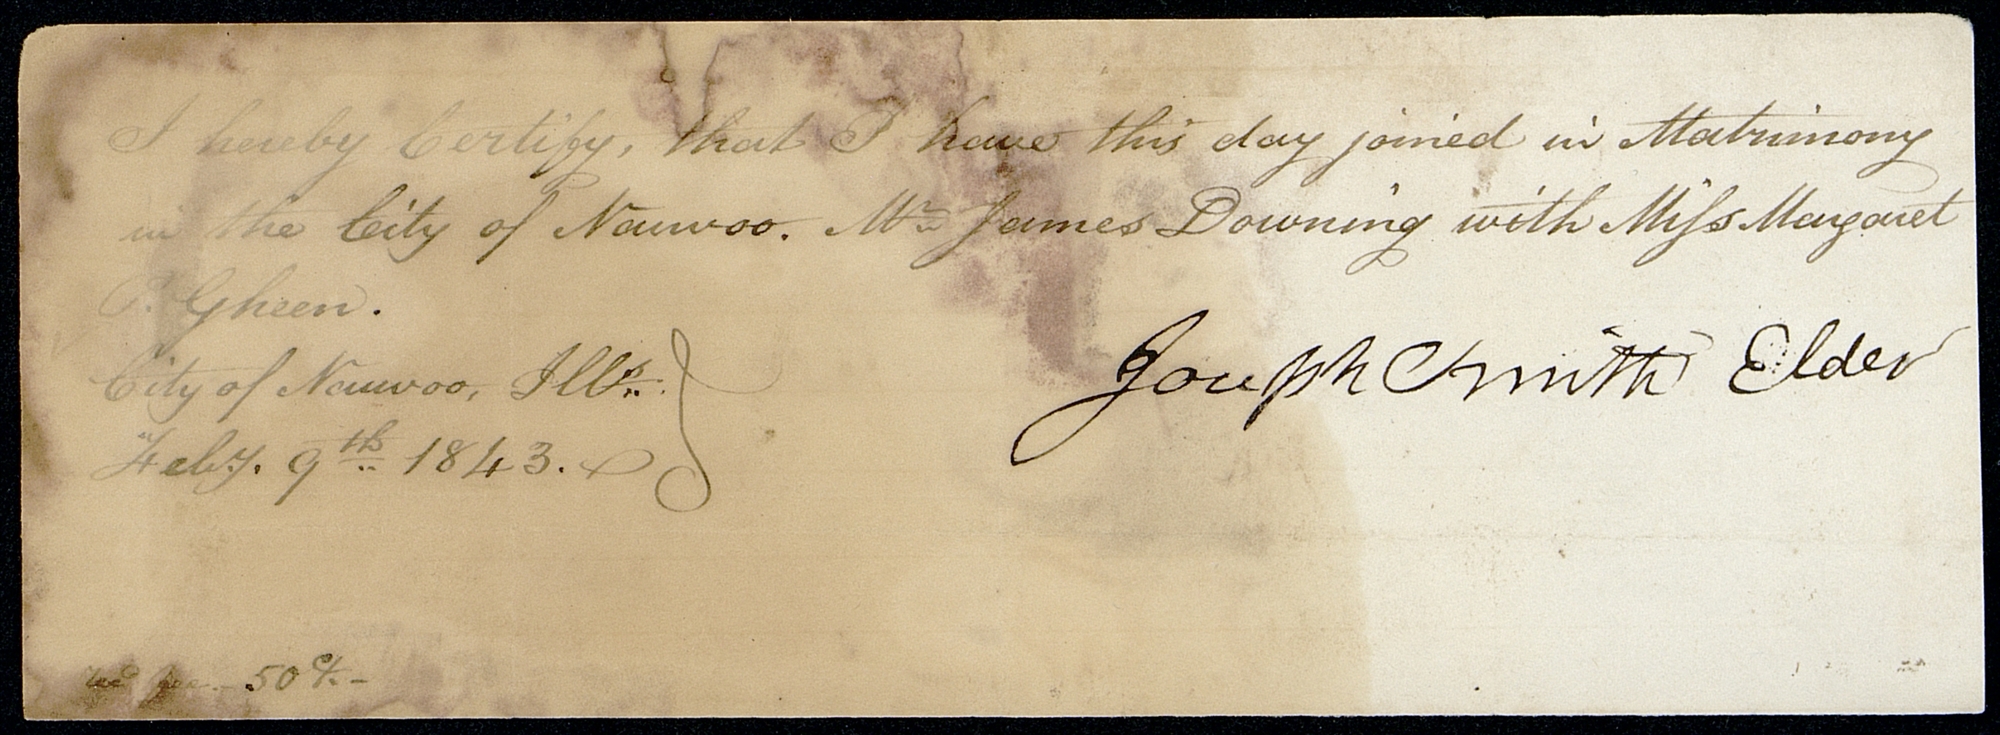 I hereby Certify, that I have this day joined in Matrimony
in the City of Nauvoo. Mr. James Downing with Miss Margaret
P. Gheen.
Joseph Smith Elder
City of Nauvoo, Ills.
Feby. 9th 1843.
fee. 50 cts.